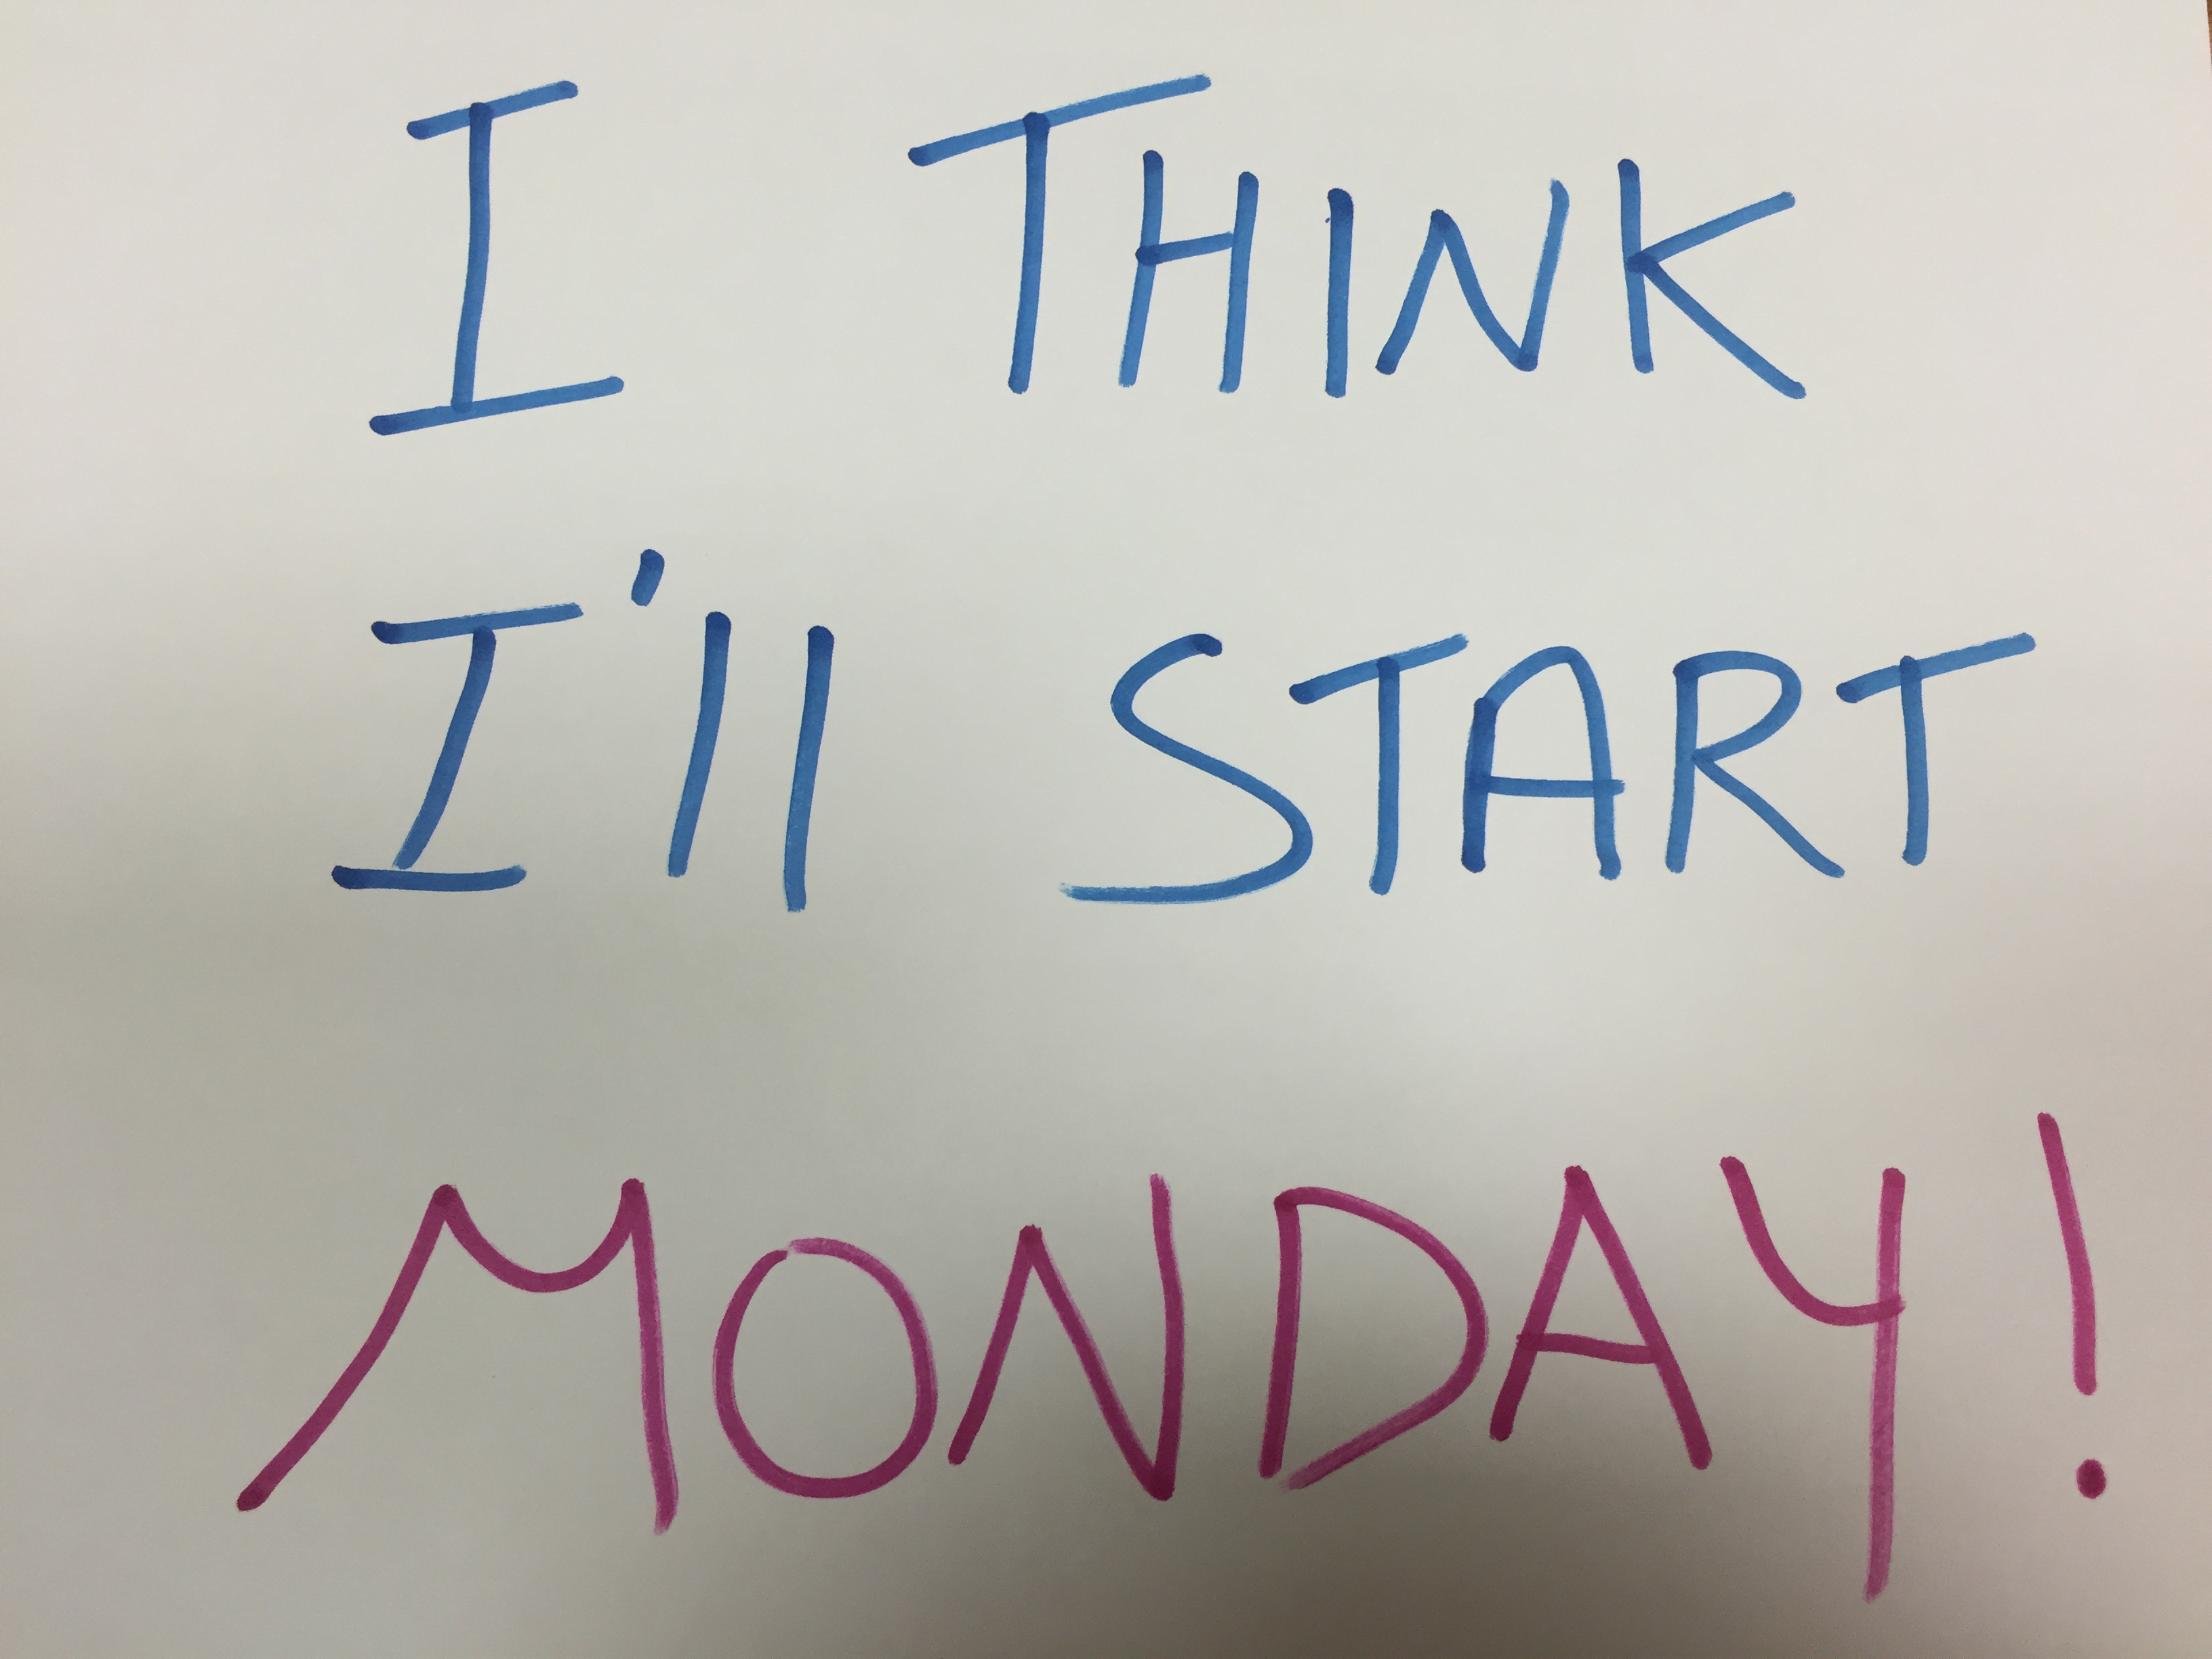 I THINK
I'll START
MONDAY!